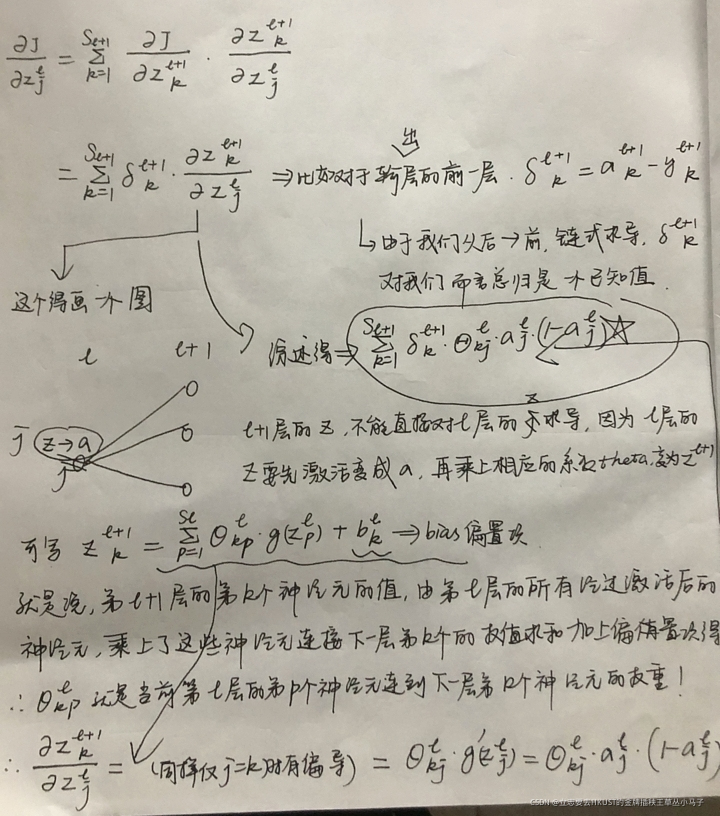 ∂J/∂z_j^l = Σ_{k=1}^{S_{l+1}} ∂J/∂z_k^{l+1} · ∂z_k^{l+1}/∂z_j^l
出
= Σ_{k=1}^{S_{l+1}} δ_k^{l+1} · ∂z_k^{l+1}/∂z_j^l ⇒ 比如对于输层的前一层. δ_k^{l+1} = a_k^{l+1} - y_k^{l+1}
↳由于我们从后→前, 链式求导, δ_k^{l+1}
对我们而言总归是一个已知值.
这个得画一个图
l l+1 综述得⇒ Σ_{k=1}^{S_{l+1}} δ_k^{l+1} · Θ_{kj}^l · a_j^l · (1-a_j^l) ☆
j z→a
j
l+1层的z, 不能直接对l层的z求导, 因为l层的
z要先激活变成a, 再乘上相应的系数theta, 变为z^{l+1}
可写 z_k^{l+1} = Σ_{p=1}^{Sl} Θ_{kp}^l · g(z_p^l) + b_k^l → bias偏置项
就是说, 第l+1层的第k个神经元的值, 由第l层的所有经过激活后的
神经元, 乘上了这些神经元连接下一层第k个的权值求和加上偏置项得
∴ Θ_{kp}^l 就是当前第l层的第p个神经元连到下一层第k个神经元的权重!
∴ ∂z_k^{l+1}/∂z_j^l = (同样仅j=k时有偏导) = Θ_{kj}^l · g'(z_j^l) = Θ_{kj}^l · a_j^l · (1-a_j^l)